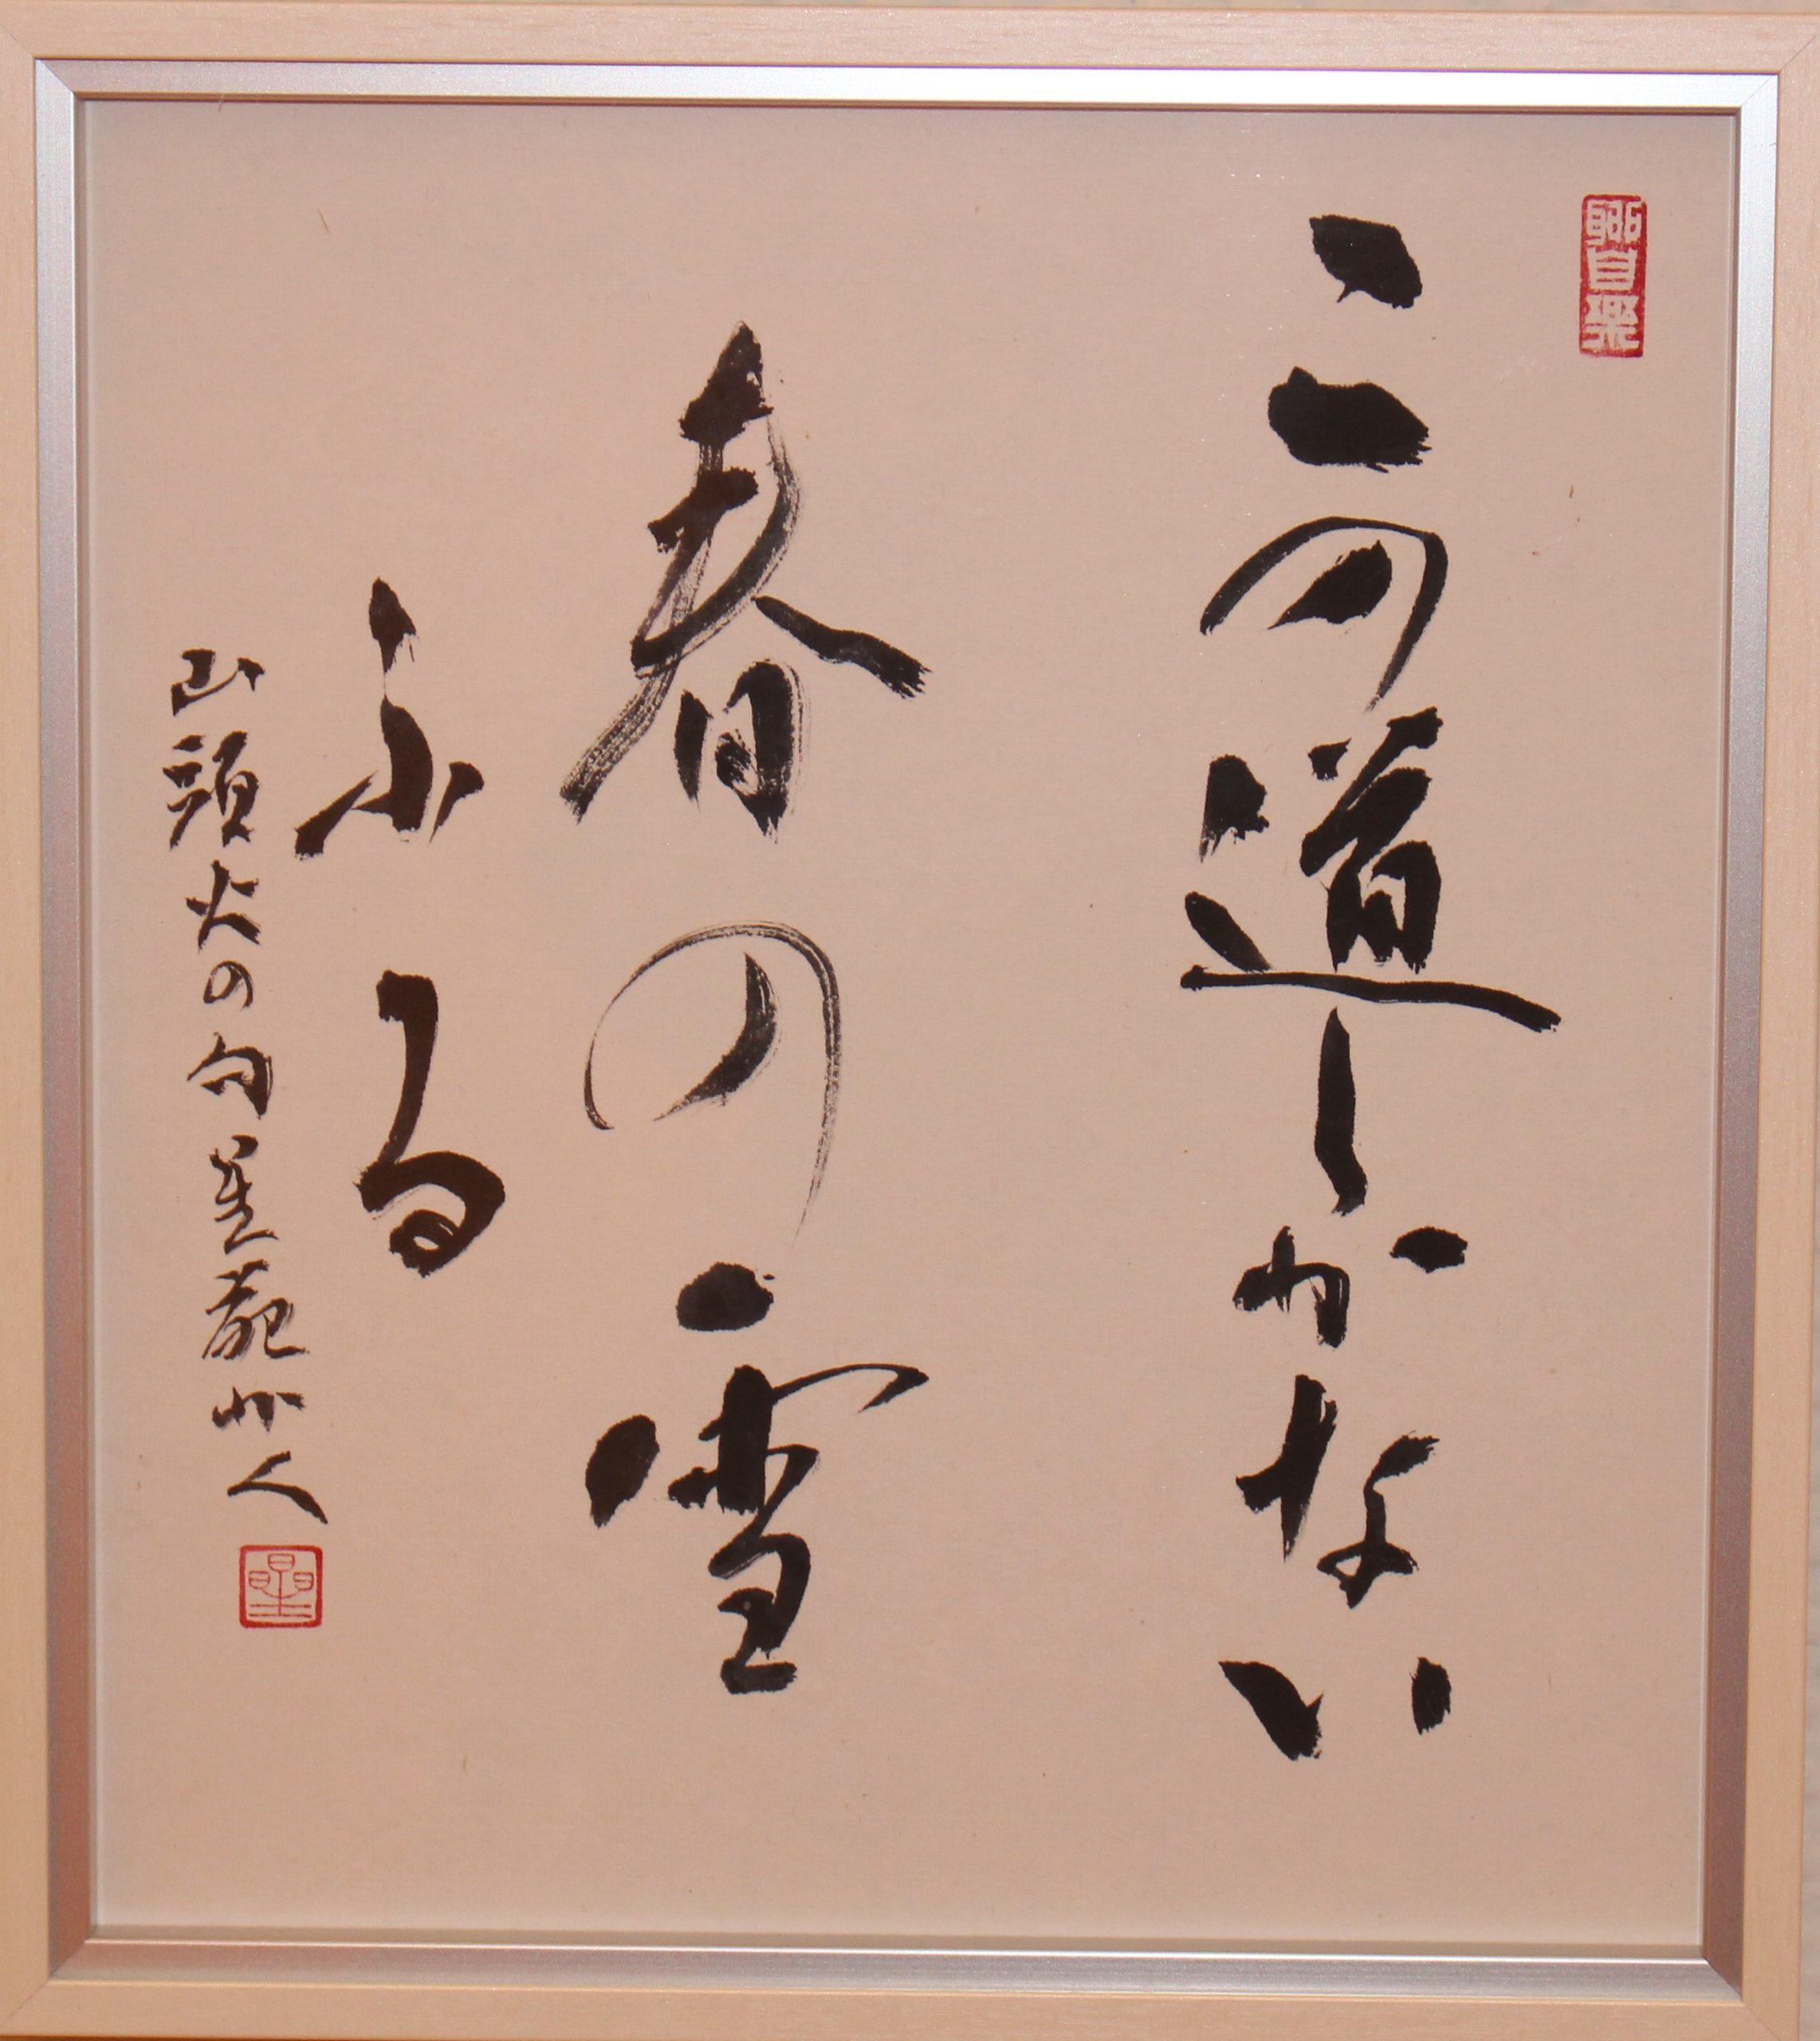 聊自楽
この道しかない
春の雪
ふる
山頭火の句 星